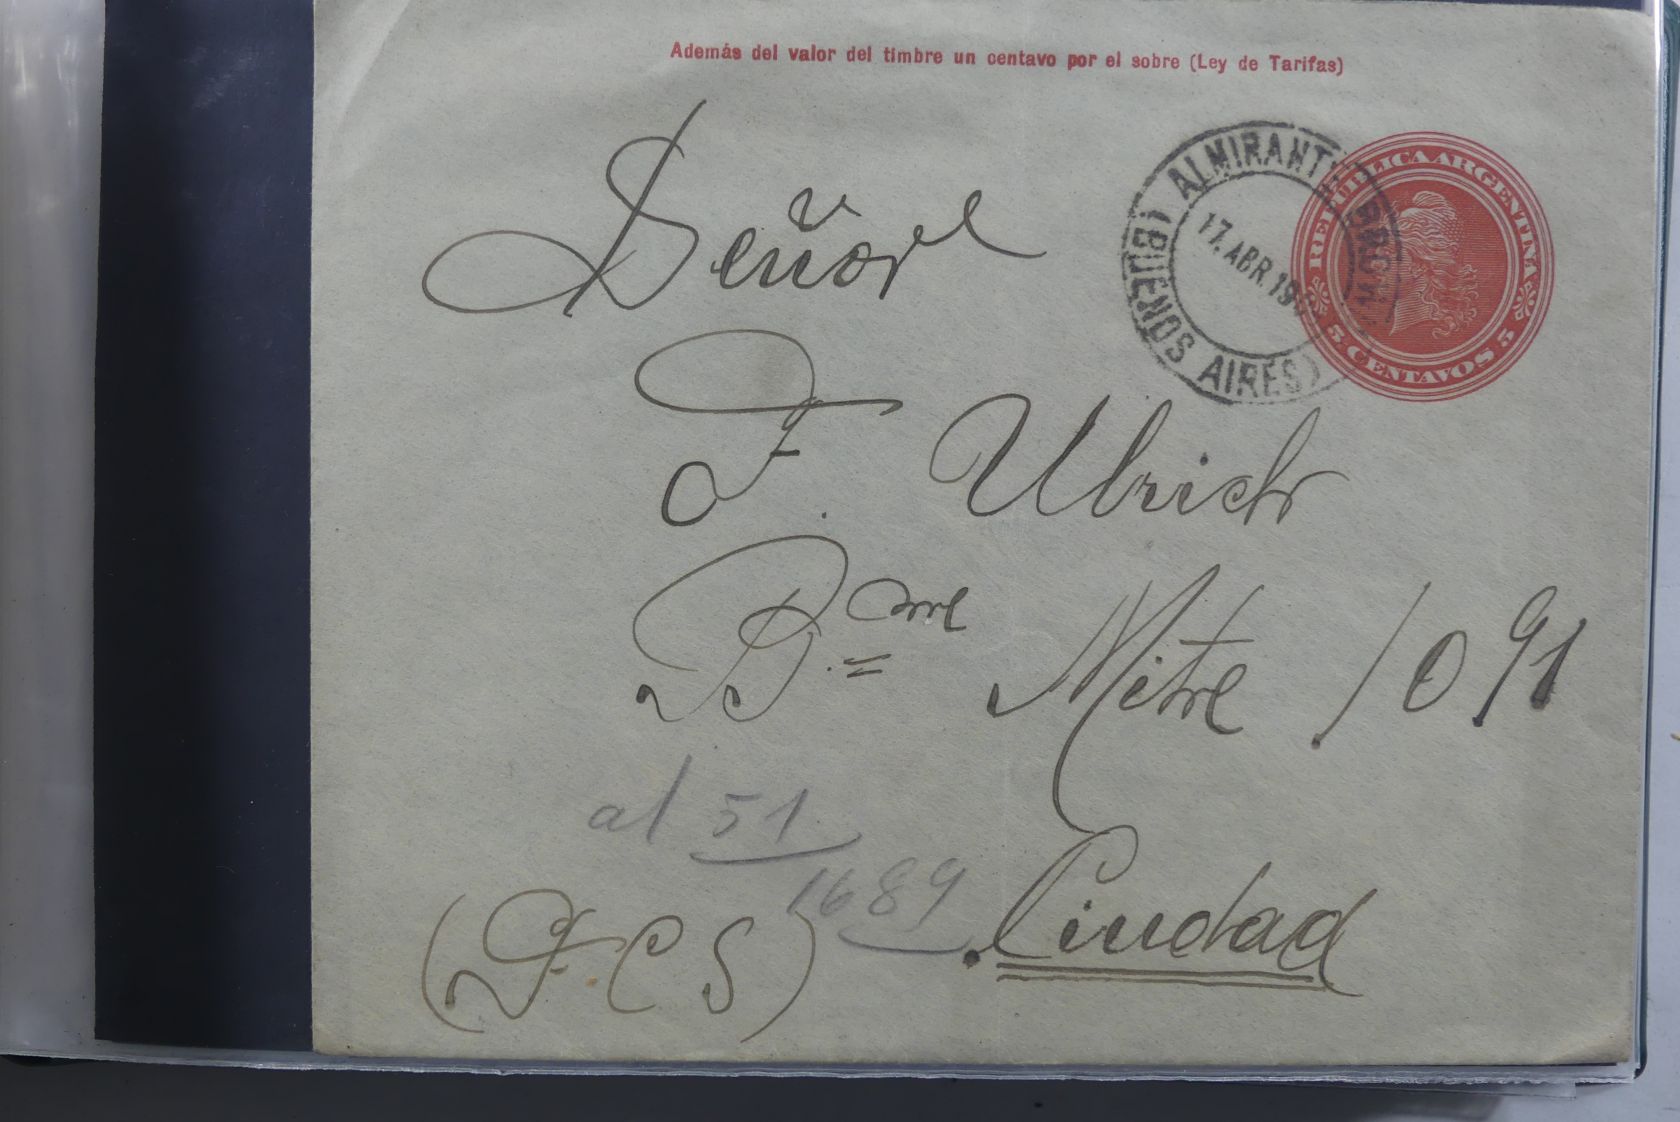 Además del valor del timbre un centavo por el sobre (Ley de Tarifas)
REPÚBLICA ARGENTINA
5 CENTAVOS 5
ALMIRANTE BROWN
(BUENOS AIRES)
17. ABR. 19
Señor
F. Ulrich
B.me Mitre 1091
al 51
1689
Ciudad
(F.C S)